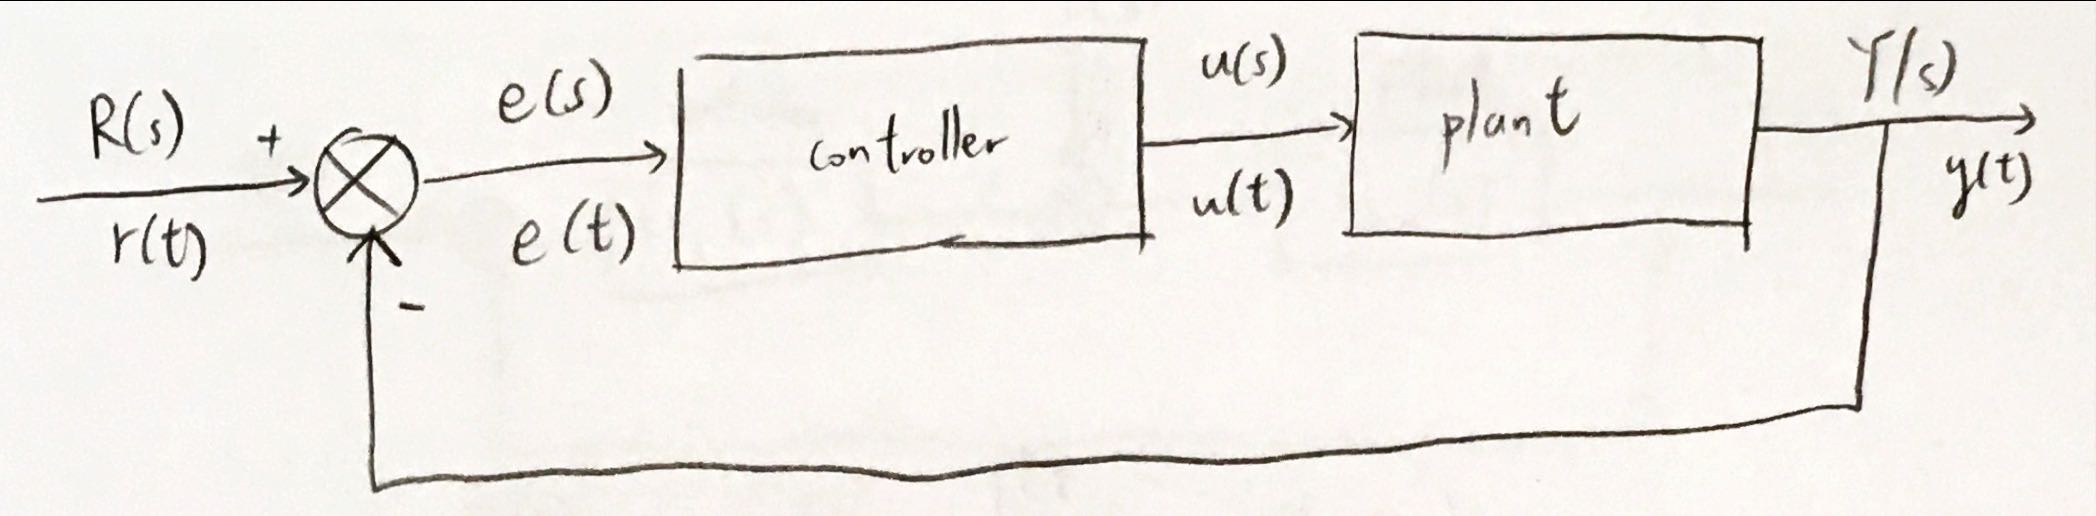 R(s)
+
r(t)
e(s)
e(t)
controller
u(s)
u(t)
plant
Y(s)
y(t)
-